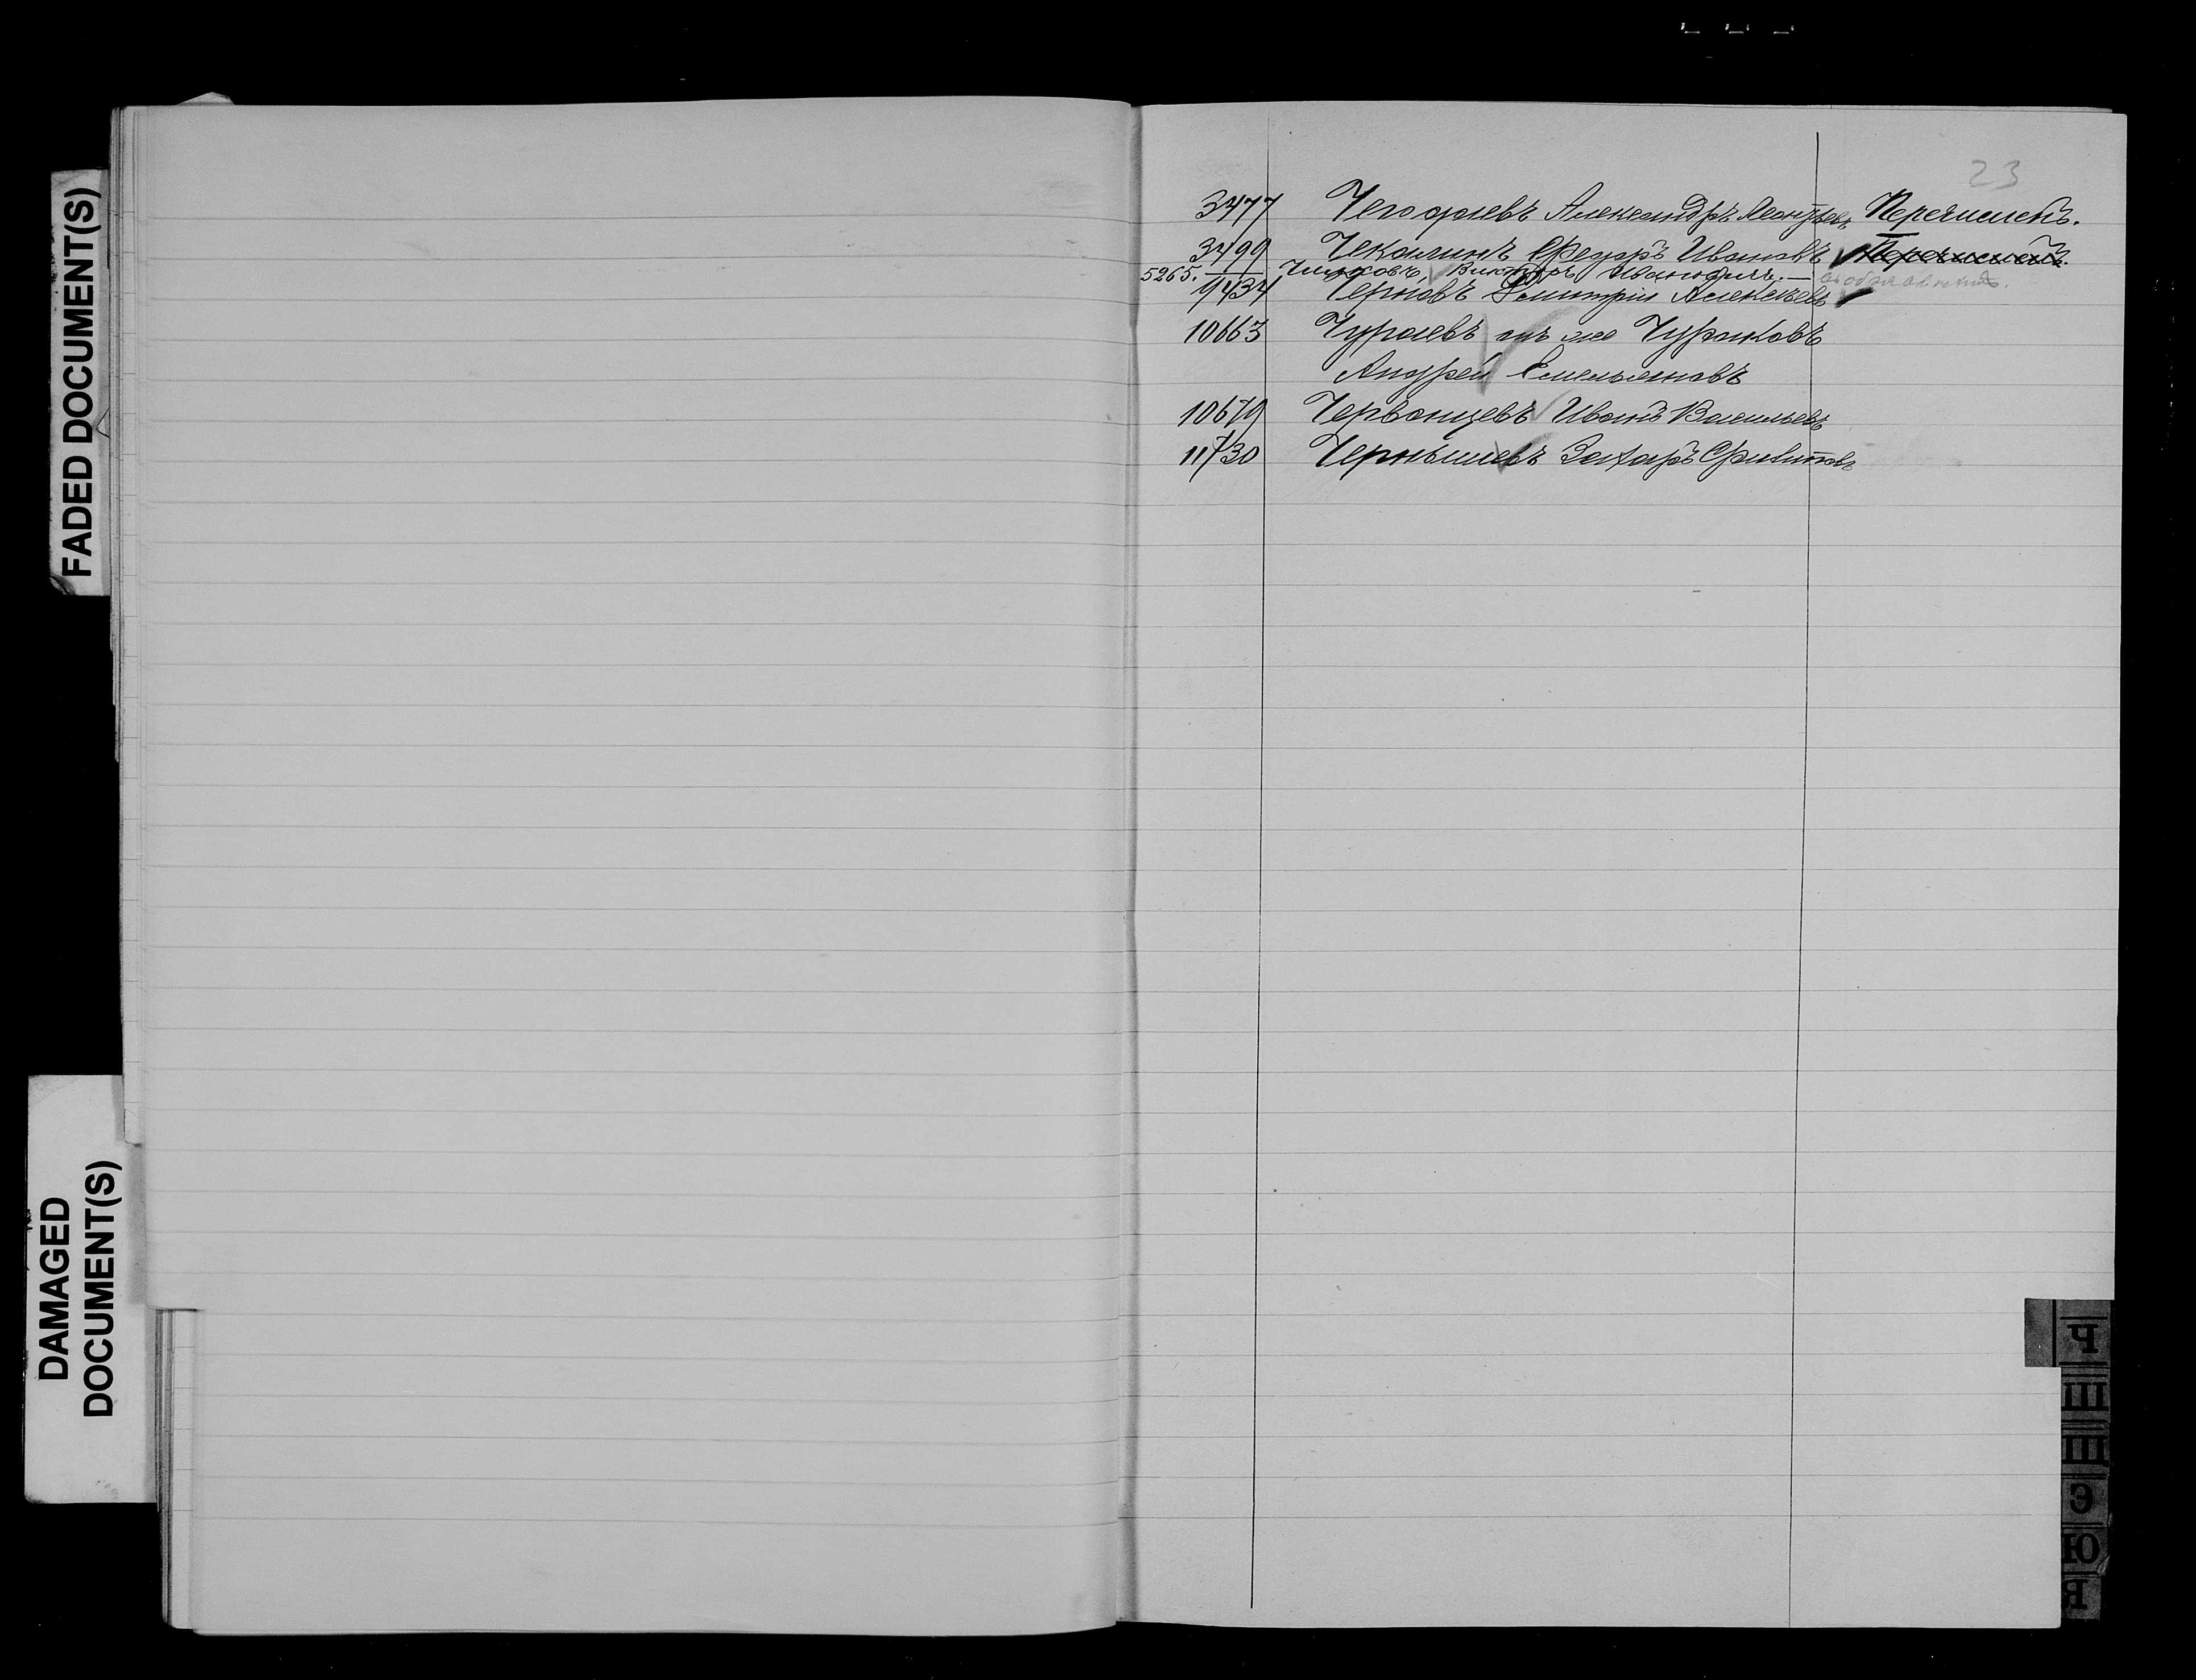 FADED DOCUMENT(S)
DAMAGED
DOCUMENT(S)
23
3477 Чегодаевъ Александръ Леонтьевъ Перечисленъ.
3499 Чекалинъ Федоръ Ивановъ Перечисленъ.
5265. Викторъ Ивановичъ.
Черновъ Дмитрій Алексѣевъ
10663 Чураевъ онъ же Чураковъ
Андрей Емельяновъ
10679 Червонцевъ Иванъ Васильевъ
11730 Чернышевъ Захаръ
Ч
Ш
Щ
Э
Ю
Я